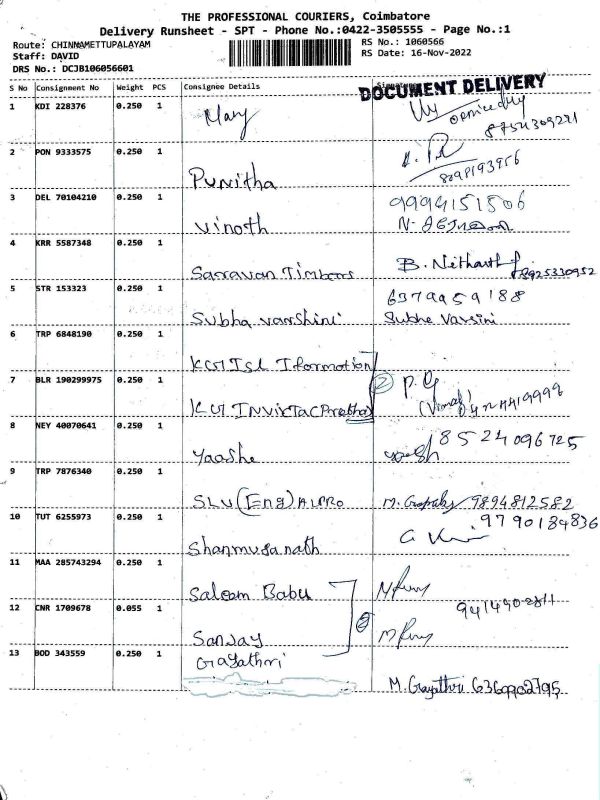 THE PROFESSIONAL COURIERS, Coimbatore
Delivery Runsheet - SPT - Phone No.:0422-3505555 - Page No.:1
Route: CHINNAMETTUPALAYAM RS No.: 1060566
Staff: DAVID RS Date: 16-Nov-2022
DRS No.: DCJB106056601
S No Consignment No Weight PCS Consignee Details
DOCUMENT DELIVERY
1 KDI 228376 0.250 1 Mary
8754309221
2 PON 9333575 0.250 1
Punitha
3 DEL 70104210 0.250 1 9994151506
Vinoth
4 KRR 5587348 0.250 1
Saravan Timbers B. Nithanth 8925330952
5 STR 153323 0.250 1 6379959188
Subha varshini Subhe Varsini
6 TRP 6848190 0.250 1
KGISL Iformation
7 BLR 190299975 0.250 1 2 P. G
8 NEY 40070641 0.250 1 8524096725
Yaashe
9 TRP 7876340 0.250 1
SLV (Eng) 9894812582
10 TUT 6255973 0.250 1 9790184836
Shanmuganath
11 MAA 285743294 0.250 1
Saleem Babu
12 CNR 1709678 0.055 1
Sanjay
13 BOD 343559 0.250 1 Gayathri
M. Gayathri 6369902795